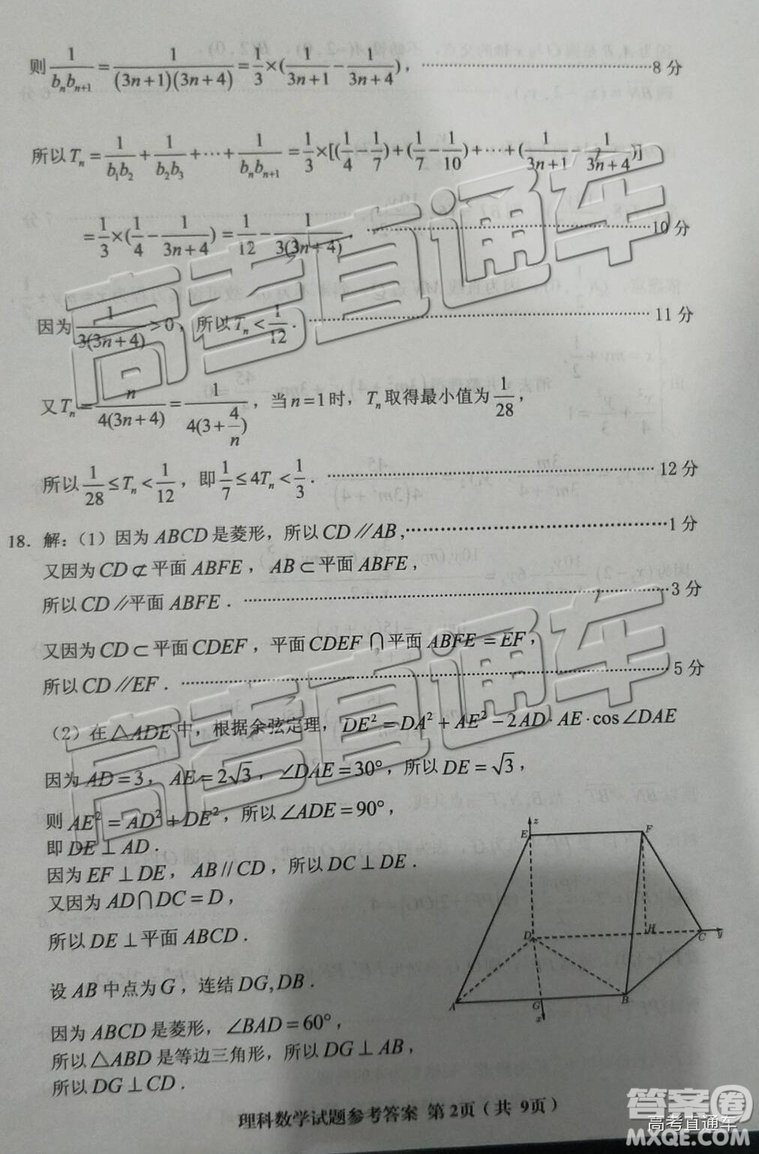 则 1/(bₙbₙ₊₁) = 1/((3n+1)(3n+4)) = 1/3×(1/(3n+1) − 1/(3n+4)), ……8 分
所以 Tₙ = 1/(b₁b₂) + 1/(b₂b₃) + ⋯ + 1/(bₙbₙ₊₁) = 1/3×[(1/4 − 1/7) + (1/7 − 1/10) + ⋯ + (1/(3n+1) − 1/(3n+4))]
= 1/3×(1/4 − 1/(3n+4)) = 1/12 − 1/(3(3n+4)). ……10 分
因为 1/(3(3n+4)) > 0, 所以 Tₙ < 1/12. ……11 分
又 Tₙ = n/(4(3n+4)) = 1/(4(3+4/n)), 当 n=1 时, Tₙ 取得最小值为 1/28,
所以 1/28 ≤ Tₙ < 1/12, 即 1/7 ≤ 4Tₙ < 1/3. ……12 分
18. 解:(1)因为 ABCD 是菱形, 所以 CD∥AB, ……1 分
又因为 CD⊄平面 ABFE, AB⊂平面 ABFE,
所以 CD∥平面 ABFE. ……3 分
又因为 CD⊂平面 CDEF, 平面 CDEF∩平面 ABFE=EF,
所以 CD∥EF. ……5 分
(2)在△ADE 中, 根据余弦定理, DE²=DA²+AE²−2AD·AE·cos∠DAE
因为 AD=3, AE=2√3, ∠DAE=30°, 所以 DE=√3,
则 AE²=AD²+DE², 所以∠ADE=90°,
即 DE⊥AD.
因为 EF⊥DE, AB∥CD, 所以 DC⊥DE.
又因为 AD∩DC=D,
所以 DE⊥平面 ABCD.
设 AB 中点为 G, 连结 DG,DB.
因为 ABCD 是菱形, ∠BAD=60°,
所以△ABD 是等边三角形, 所以 DG⊥AB,
所以 DG⊥CD.
z
E
F
D
H
C
y
A
G
B
x
理科数学试题参考答案 第 2页(共 9页)
高考直通车
高考直通车
答案圈
高考直通车
MXQE.COM